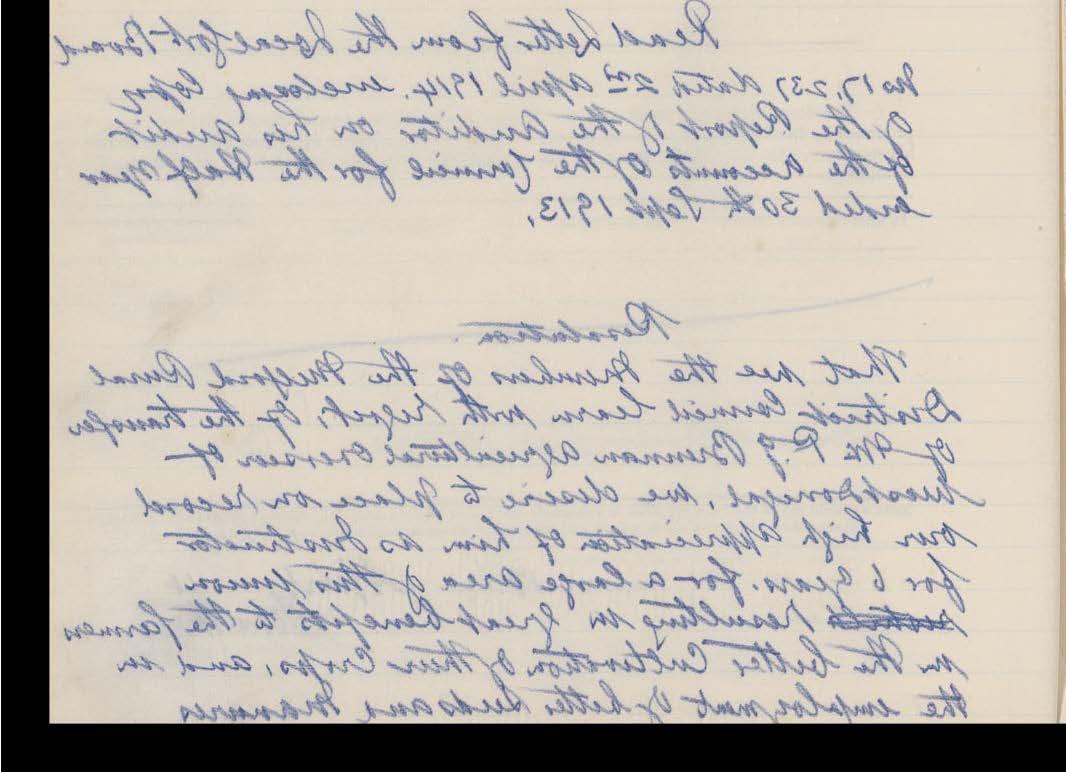 Read Letter from the Local Govt Board
No 17,237 dated 2nd April 1914. enclosing Copy
of the Report of the Auditor on his Audit
of the accounts of the Council for the Half year
ended 30th Sept 1913.
Resolution.
That we the Members of the Milford Rural
District Council learn with regret, of the transfer
of Mr R.J Brennan agricultural Overseer of
West Donegal, we desire to place on record
our high appreciation of him as Instructor
for 6 years. for a large area of this Union
resulting in great benefits to the farmers
in the better Cultivation of their Crops, and in
the employment of better seeds and Manures